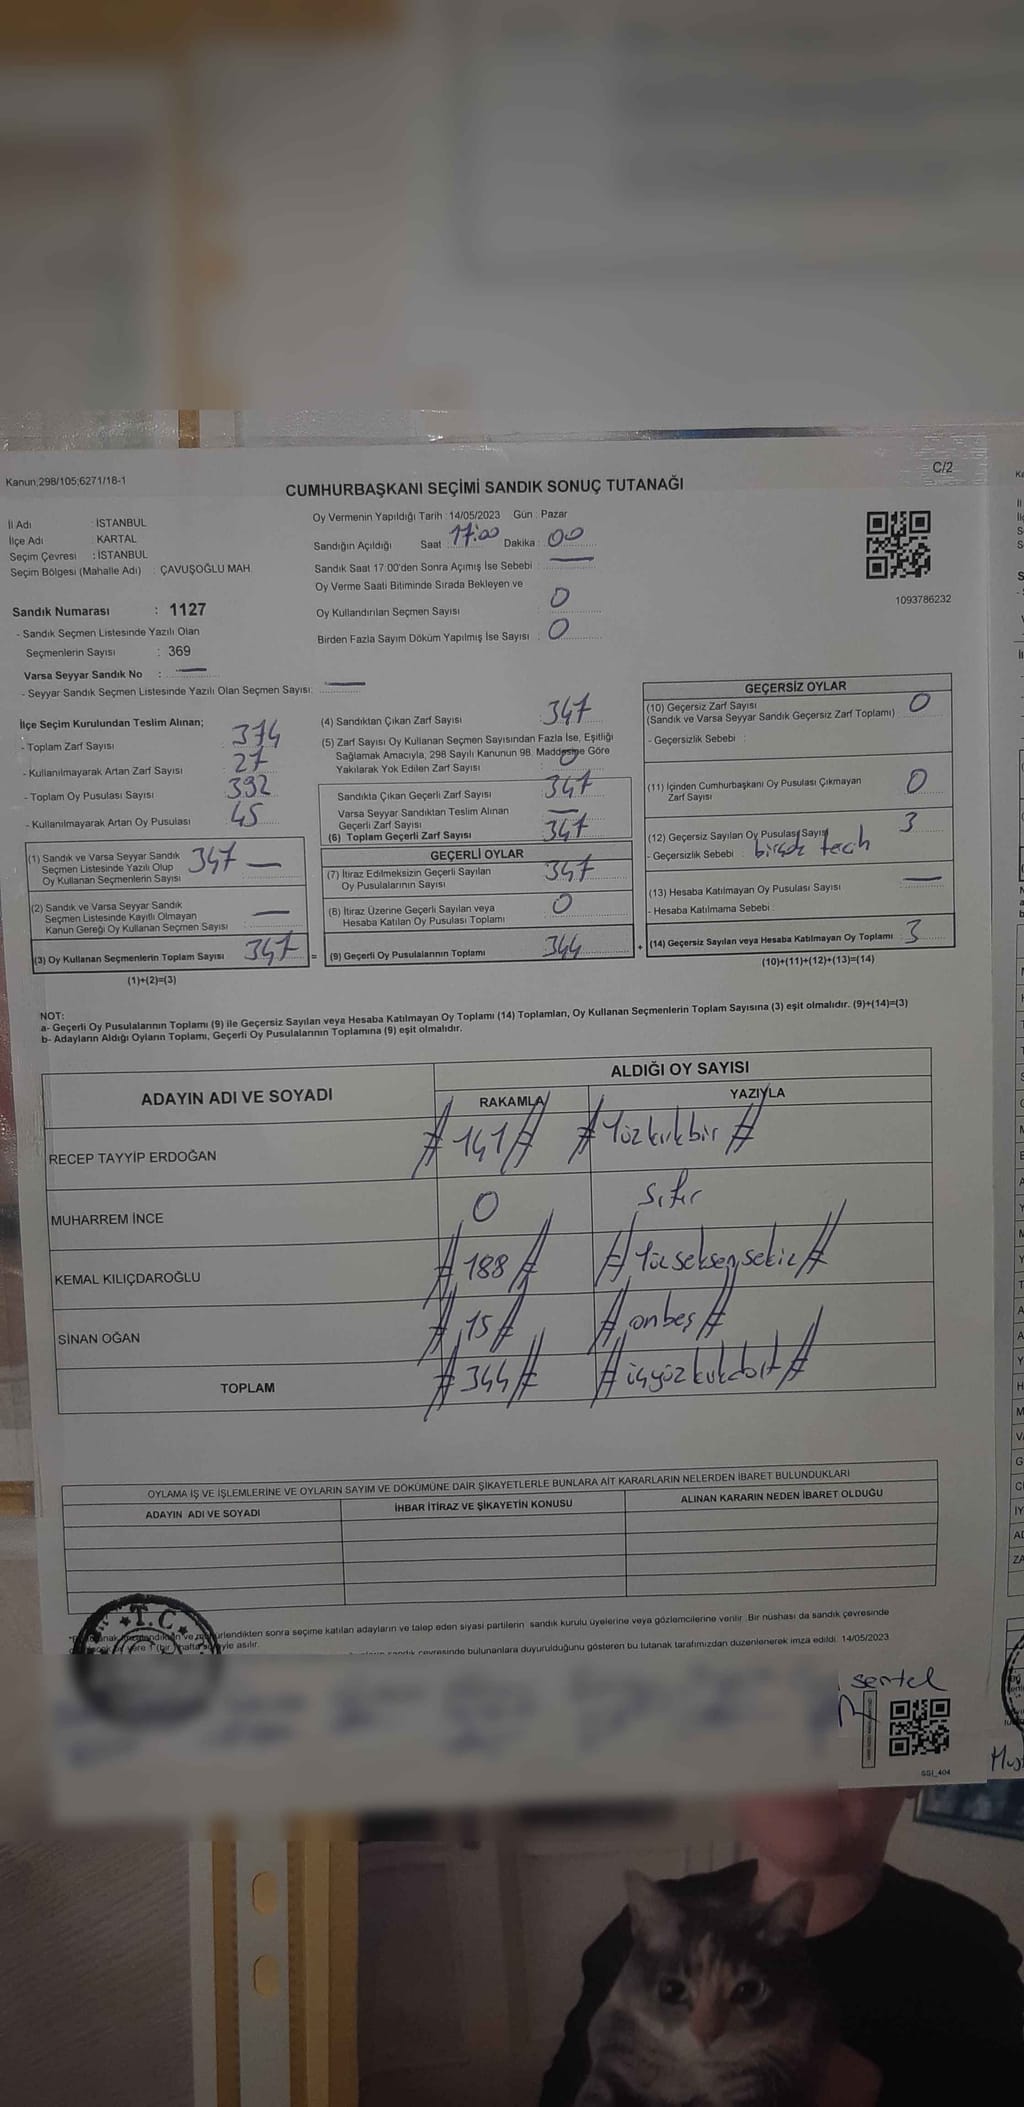 Kanun;298/105;6271/18-1
C/2
CUMHURBAŞKANI SEÇİMİ SANDIK SONUÇ TUTANAĞI
İl Adı : İSTANBUL
İlçe Adı : KARTAL
Seçim Çevresi : İSTANBUL
Seçim Bölgesi (Mahalle Adı) : ÇAVUŞOĞLU MAH.
Sandık Numarası : 1127
- Sandık Seçmen Listesinde Yazılı Olan
Seçmenlerin Sayısı : 369
Varsa Seyyar Sandık No : —
- Seyyar Sandık Seçmen Listesinde Yazılı Olan Seçmen Sayısı: —
Oy Vermenin Yapıldığı Tarih : 14/05/2023 Gün : Pazar
Sandığın Açıldığı Saat : 17:00 Dakika : 00
Sandık Saat 17:00'den Sonra Açımış İse Sebebi : —
Oy Verme Saati Bitiminde Sırada Bekleyen ve
Oy Kullandırılan Seçmen Sayısı : 0
Birden Fazla Sayım Döküm Yapılmış İse Sayısı : 0
1093786232
İlçe Seçim Kurulundan Teslim Alınan;
- Toplam Zarf Sayısı 374
- Kullanılmayarak Artan Zarf Sayısı 27
- Toplam Oy Pusulası Sayısı 392
- Kullanılmayarak Artan Oy Pusulası 45
(1) Sandık ve Varsa Seyyar Sandık
Seçmen Listesinde Yazılı Olup
Oy Kullanan Seçmenlerin Sayısı 347 —
(2) Sandık ve Varsa Seyyar Sandık
Seçmen Listesinde Kayıtlı Olmayan
Kanun Gereği Oy Kullanan Seçmen Sayısı —
(3) Oy Kullanan Seçmenlerin Toplam Sayısı 347
(1)+(2)=(3)
(4) Sandıktan Çıkan Zarf Sayısı 347
(5) Zarf Sayısı Oy Kullanan Seçmen Sayısından Fazla İse, Eşitliği
Sağlamak Amacıyla, 298 Sayılı Kanunun 98. Maddesine Göre
Yakılarak Yok Edilen Zarf Sayısı 0
Sandıkta Çıkan Geçerli Zarf Sayısı 347
Varsa Seyyar Sandıktan Teslim Alınan
Geçerli Zarf Sayısı —
(6) Toplam Geçerli Zarf Sayısı 347
GEÇERLİ OYLAR
(7) İtiraz Edilmeksizin Geçerli Sayılan
Oy Pusulalarının Sayısı 347
(8) İtiraz Üzerine Geçerli Sayılan veya
Hesaba Katılan Oy Pusulası Toplamı 0
= (9) Geçerli Oy Pusulalarının Toplamı 344
GEÇERSİZ OYLAR
(10) Geçersiz Zarf Sayısı 0
(Sandık ve Varsa Seyyar Sandık Geçersiz Zarf Toplamı)
- Geçersizlik Sebebi :
(11) İçinden Cumhurbaşkanı Oy Pusulası Çıkmayan
Zarf Sayısı 0
(12) Geçersiz Sayılan Oy Pusulası Sayısı 3
- Geçersizlik Sebebi :
(13) Hesaba Katılmayan Oy Pusulası Sayısı —
- Hesaba Katılmama Sebebi :
+ (14) Geçersiz Sayılan veya Hesaba Katılmayan Oy Toplamı 3
(10)+(11)+(12)+(13)=(14)
NOT:
a- Geçerli Oy Pusulalarının Toplamı (9) ile Geçersiz Sayılan veya Hesaba Katılmayan Oy Toplamı (14) Toplamları, Oy Kullanan Seçmenlerin Toplam Sayısına (3) eşit olmalıdır. (9)+(14)=(3)
b- Adayların Aldığı Oyların Toplamı, Geçerli Oy Pusulalarının Toplamına (9) eşit olmalıdır.
ADAYIN ADI VE SOYADI
ALDIĞI OY SAYISI
RAKAMLA YAZIYLA
RECEP TAYYİP ERDOĞAN #141# #Yüzkırkbir#
MUHARREM İNCE 0 Sıfır
KEMAL KILIÇDAROĞLU #188# #Yüzseksensekiz#
SİNAN OĞAN #15# #onbeş#
TOPLAM #344# #üçyüzkırkdört#
OYLAMA İŞ VE İŞLEMLERİNE VE OYLARIN SAYIM VE DÖKÜMÜNE DAİR ŞİKAYETLERLE BUNLARA AİT KARARLARIN NELERDEN İBARET BULUNDUKLARI
ADAYIN ADI VE SOYADI İHBAR İTİRAZ VE ŞİKAYETİN KONUSU ALINAN KARARIN NEDEN İBARET OLDUĞU
T.C
sonra seçime katılan adayların ve talep eden siyasi partilerin sandık kurulu üyelerine veya gözlemcilerine verilir. Bir nüshası da sandık çevresinde
asılır.
sandık çevresinde bulunanlara duyurulduğunu gösteren bu tutanak tarafımızdan düzenlenerek imza edildi. 14/05/2023
sertel
SSİ_404